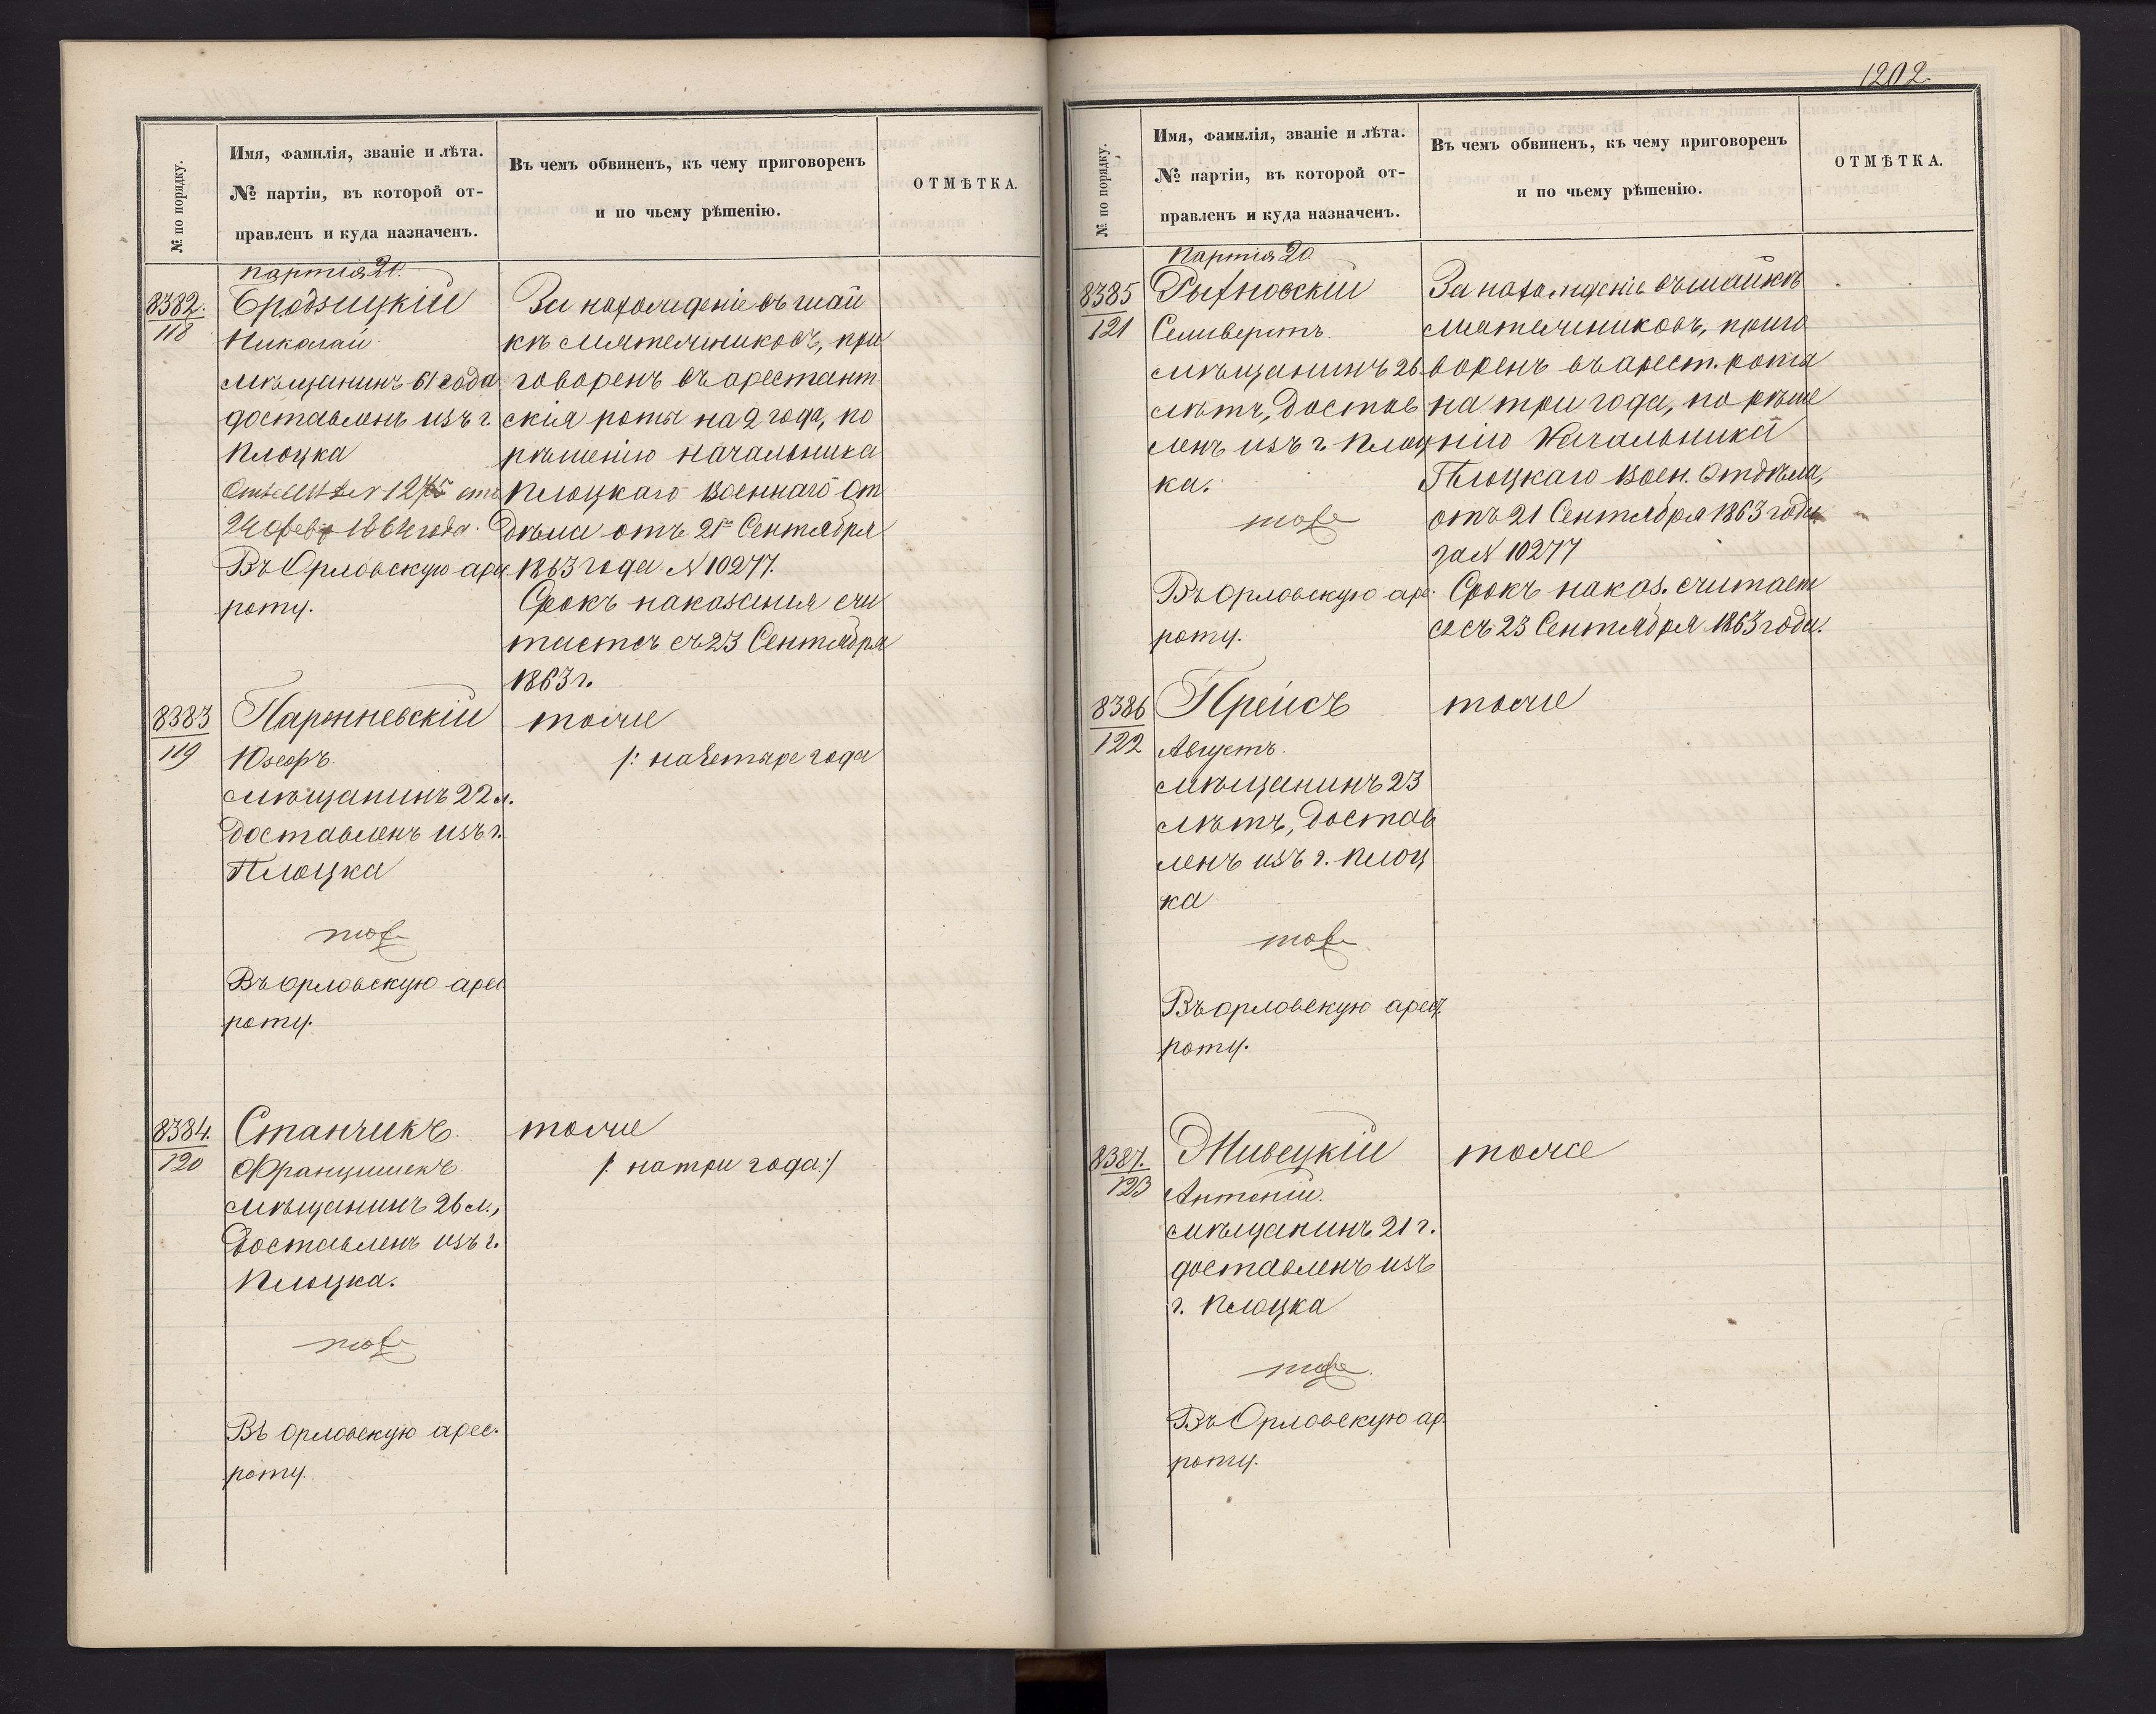 1202.
№ по порядку.
Имя, фамилія, званіе и лѣта.
№ партіи, въ которой от-
правленъ и куда назначенъ.
Въ чемъ обвиненъ, къ чему приговоренъ
и по чьему рѣшенію.
ОТМѢТКА.
партія 20.
8382.
118
Бродзицкій
Николай
мѣщанинъ 61 года
доставленъ изъ г.
Плоцка
24 февр 1864 года.
Въ Орловскую аре
роту.
За нахожденіе въ шай
кѣ мятежниковъ, при
говоренъ въ арестант
скія роты на 2 года, по
рѣшенію начальника
Плоцкаго Военнаго От
дѣла отъ 21го Сентября
1863 года N 10277.
Срокъ наказанія счи
тается съ 23 Сентября
1863 г.
8383
119
Юзефъ
мѣщанинъ 22 л.
доставленъ изъ г.
Плоцка
тоже
Въ орловскую арес
роту.
тоже
/: на четыре года
8384.
120
Станчикъ.
Францишекъ.
мѣщанинъ 26 л.,
доставленъ изъ г.
Плоцка.
тоже
Въ орловскую арес.
роту.
тоже
/: на три года :/
№ по порядку.
Имя, фамилія, званіе и лѣта.
№ партіи, въ которой от-
правленъ и куда назначенъ.
Въ чемъ обвиненъ, къ чему приговоренъ
и по чьему рѣшенію.
ОТМѢТКА.
Партія 20
8385
121
Рыхновскій
Селиверстъ.
мѣщанинъ 26
лѣтъ, достав
ленъ изъ г. Плоц
ка.
тоже
Въ орловскую аре.
роту.
За нахожденіе въ шайкѣ
мятежниковъ, приго
воренъ въ арест. роты
на три года, по рѣше
нію Начальника
Плоцкаго Воен. Отдѣла,
отъ 21 Сентября 1863 года
за N 10277
Срокъ наказ. считает
ся съ 23 Сентября 1863 года.
8386
122
Прейсъ
Августъ.
мѣщанинъ 23
лѣтъ, достав
ленъ изъ г. Плоц
ка
тоже
Въ орловскую арес.
роту.
тоже
8387.
123
Живецкій
Антоній.
мѣщанинъ 21 г.
доставленъ изъ
г. Плоцка
тоже.
Въ Орловскую ар.
роту.
тоже